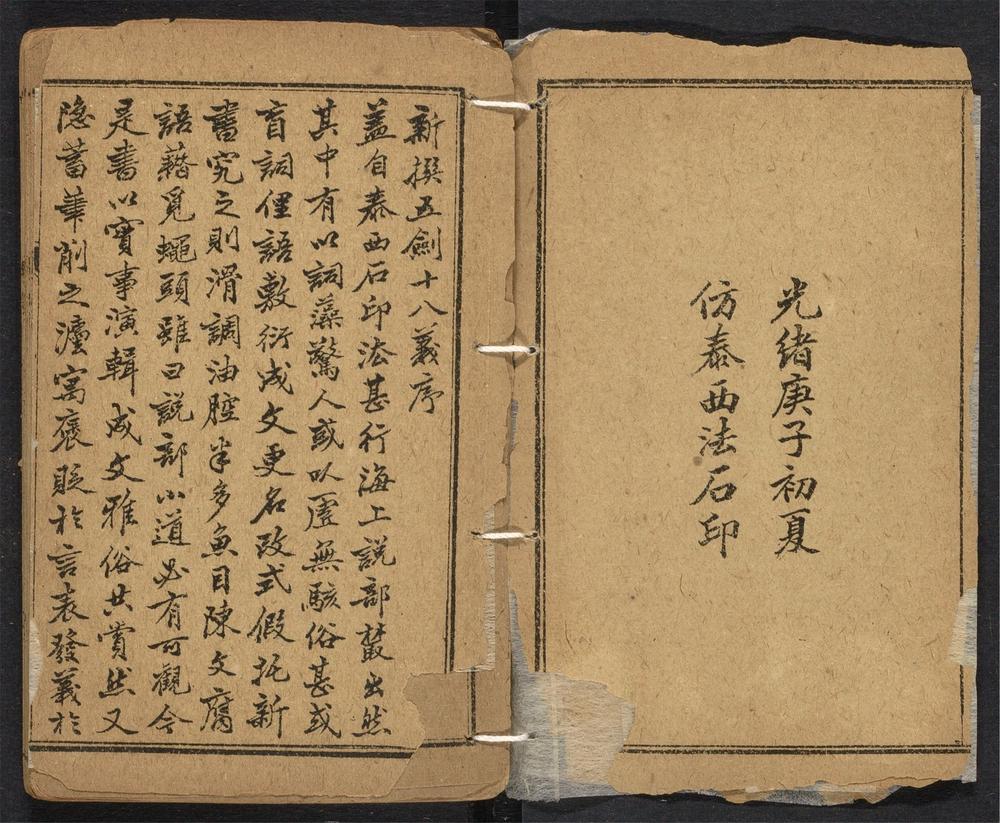 光緒庚子初夏
仿泰西法石印
新撰五劍十八義序
蓋自泰西石印法甚行海上說部蝥出然
其中有以詞藻驚人或以虛無駭俗甚或
盲詞俚語敷衍成文更名改式假托新
書究之則滑調油腔半多魚目陳文腐
語藉覓蠅頭雖曰說部小道必有可觀今
是書以實事演輯成文雅俗共賞然又
隐蓄筆削之灋寓褒貶於言表發義於